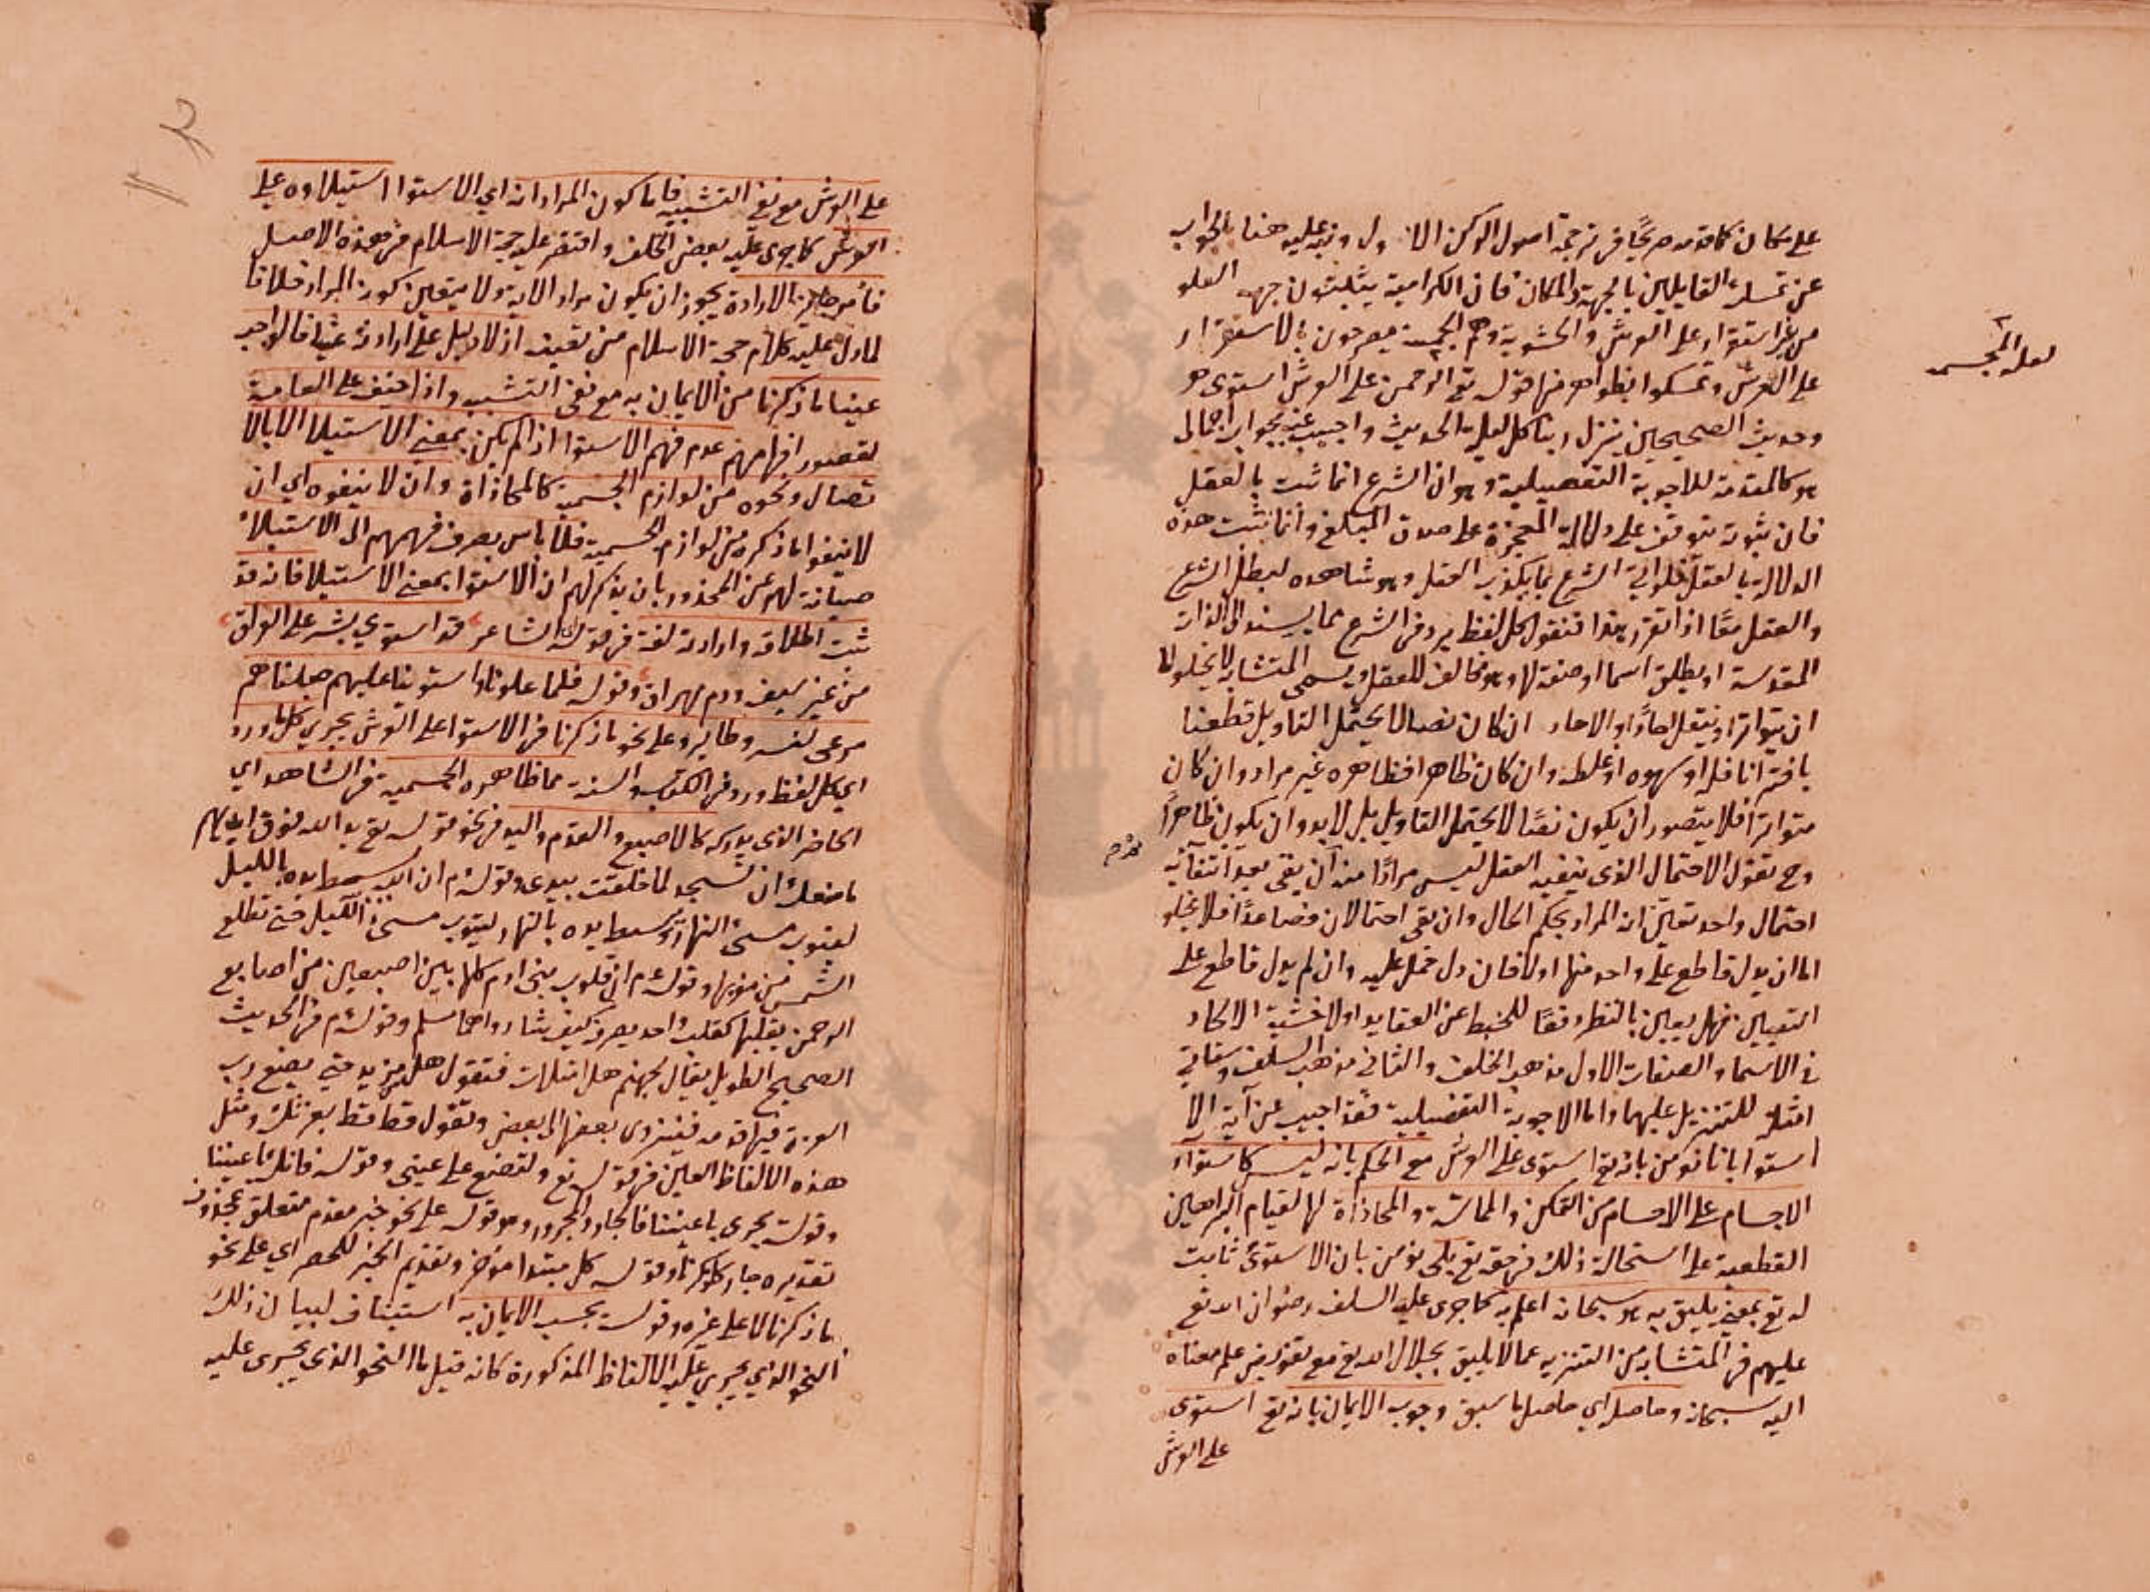 على مكان كما قدمه صريحًا في ترجمة اصول الركن الاول ونبه عليه هنا بالجواب
عن تمسك القايلين بالجهة والمكان فان الكرامية يثبتون جهة العلو
من غير استقرار على العرش والحشوية وهم المجسمة يصرحون بالاستقرار
على العرش وتمسكوا بظواهر منها قوله تع الرحمن على العرش استوى
وحديث الصحيحين ينزل ربنا كل ليلة الحديث واجيب عنه بجواب اجمالى
هو كالمقدمة للاجوبة التفصيلية وهو ان الشرع انما ثبت بالعقل
فان ثبوته يتوقف على دلالة المعجزة على صدق المبلغ وانما تثبت هذه
الدلالة بالعقل فلو اتى الشرع بما يكذب العقل وهو شاهده لبطل الشرع
والعقل معًا اذا تقرر هذا فنقول كل لفظ يرد في الشرع مما يسند الى الذات
المقدسة او يطلق اسما او صفة لها وهو مخالف للعقل ويسمى المتشابه لا يخلو اما
ان يتواتر او ينقل احادًا والاحاد ان كان نصا لا يحتمل التاويل قطعنا
بافترا ناقله او سهوه او غلطه وان كان ظاهرا فظاهره غير مراد وان كان
متواترا فلا يتصور ان يكون نصًا لا يحتمل التاويل بل لا بد وان يكون ظاهرًا
وح نقول الاحتمال الذى ينفيه العقل ليس مرادًا منه ان بقى بعد انتفائه
احتمال واحد تعين انه المراد بحكم الحال وان بقى احتمالان فصاعدًا فلا يخلو
اما ان يدل قاطع على واحد منها اولا فان دل حمل عليه وان لم يدل قاطع على
التعيين فهل يعين بالنظر دفعًا للخبط عن العقايد اولا خشية الالحاد
في الاسماء والصفات الاول مذهب الخلف والثانى مذهب السلف وستاتي
امثلة للتنزيل عليهما واما الاجوبة التفصيلية فقد اجيب عن آية الا
استوا بانا نومن بانه تع استوى على العرش مع الحكم بانه ليس كاستواء
الاجسام على الاجسام من التمكن والمماسة والمحاذاة لها لقيام البراهين
القطعية على استحالة ذلك في حقه تع بل نومن بان الاستوى ثابت
له تع بمعنى يليق به هو سبحانه اعلم به كما جرى عليه السلف رضوان الله تع
عليهم في المتشابه من التنزيه عما لا يليق بجلال الله تع مع تفويض علم معناه
اليه سبحانه وحاصله اي حاصل ما سبق وجوب الايمان بانه تع استوى
على العرش
لعله المجسمه
على العرش مع نفي التشبيه فاما كون المراد انه اي الاستوا استيلاوه على
العرش كما جرى عليه بعض الخلف واقتصر عليه حجة الاسلام في هذه الاصل
فأمر جايز الارادة يجوز ان يكون مراد الاية ولا يتعين كونه المراد خلافا
لما دل عليه كلام حجة الاسلام من تعينه اذ لا دليل على ارادته عينًا فالواجب
عينا ما ذكرنا من الايمان به مع نفى التشبيه واذا خيف على العامة
لقصور افهامهم عدم فهم الاستوا اذا لم يكن بمعنى الاستيلا الا بالا
تصال ونحوه من لوازم الجسمية كالمحاذاة وان لا ينفوه اي ان
لا ينفوا ما ذكره من لوازم الجسمية فلا باس بصرف فهمهم الى الاستيلاء
صيانة لهم عن المحذور بان يذكر لهم ان الاستوا بمعنى الاستيلا فانه قد
ثبت اطلاقه وارادته لغة في قول الشاعر قد استوي بشر على العراق
من غير سيف ودم مهراق وقوله فلما علونا واستوينا عليهم جعلناهم
مرعى لنسر وطاير وعلى نحو ما ذكرنا في الاستوا على العرش يجري كل ما ورد
اي كل لفظ ورد في الكتاب والسنة مما ظاهره الجسمية في الشاهد اي
الحاضر الذى يدركه كالاصبع والقدم واليد في نحو قوله تع يد الله فوق ايديهم
ما منعك ان تسجد لما خلقت بيدى وقوله م ان الله يبسط يده بالليل
ليتوب مسئ النهار ويبسط يده بالنهار ليتوب مسئ الليل حتى تطلع
الشمس من مغربها وقوله م ان قلوب بني ادم كلها بين اصبعين من اصابع
الرحمن يقلبها كقلب واحد يصرفه كيف شاء رواهما مسلم وقوله م في الحديث
الصحيح الطويل يقال لجهنم هل امتلات فتقول هل من مزيد حتى يضع رب
العزة فيها قدمه فينزوى بعضها الى بعض وتقول قط قط بعزتك ومثل
هذه الالفاظ العين في قوله تع ولتصنع على عينى وقوله فانك باعيننا
وقوله تجرى باعيننا فالجار والمجرور وهو قوله على نحو خبر مقدم متعلق بمحذوف
تقديره جار كما ذكرنا وقوله كل مبتدا موخر وتقديم الخبر للحصر اي على نحو
ما ذكرنا لا على غيره وقوله يجب الايمان به استيناف لبيان ذلك
النحو الذي يجري عليه الالفاظ المذكورة كانه قيل ما النحو الذي يجرى عليه